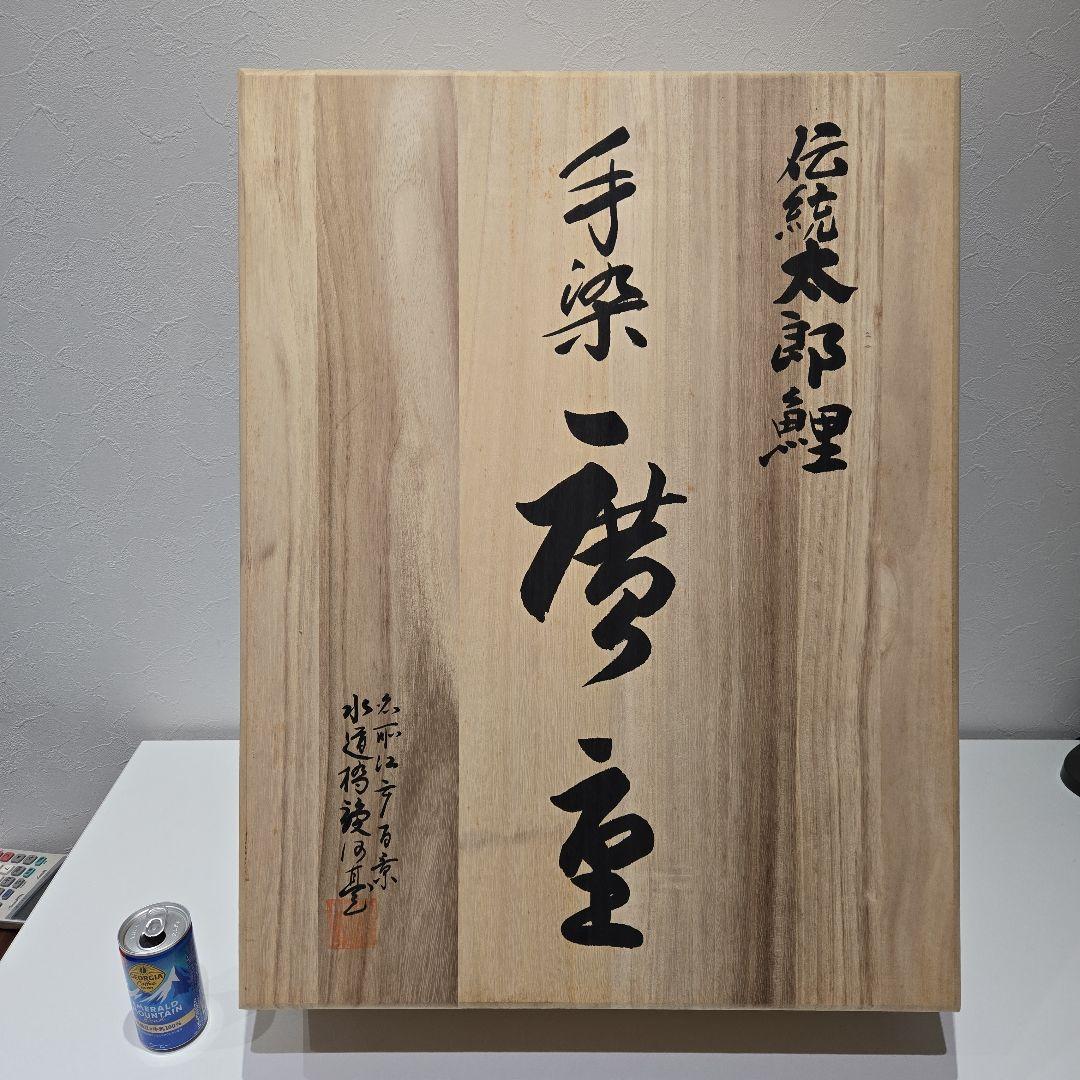 伝統太郎鯉
手染
一廣重
名所江戸百景
水道橋駿河臺
GEORGIA
Coffee
EMERALD
MOUNTAIN